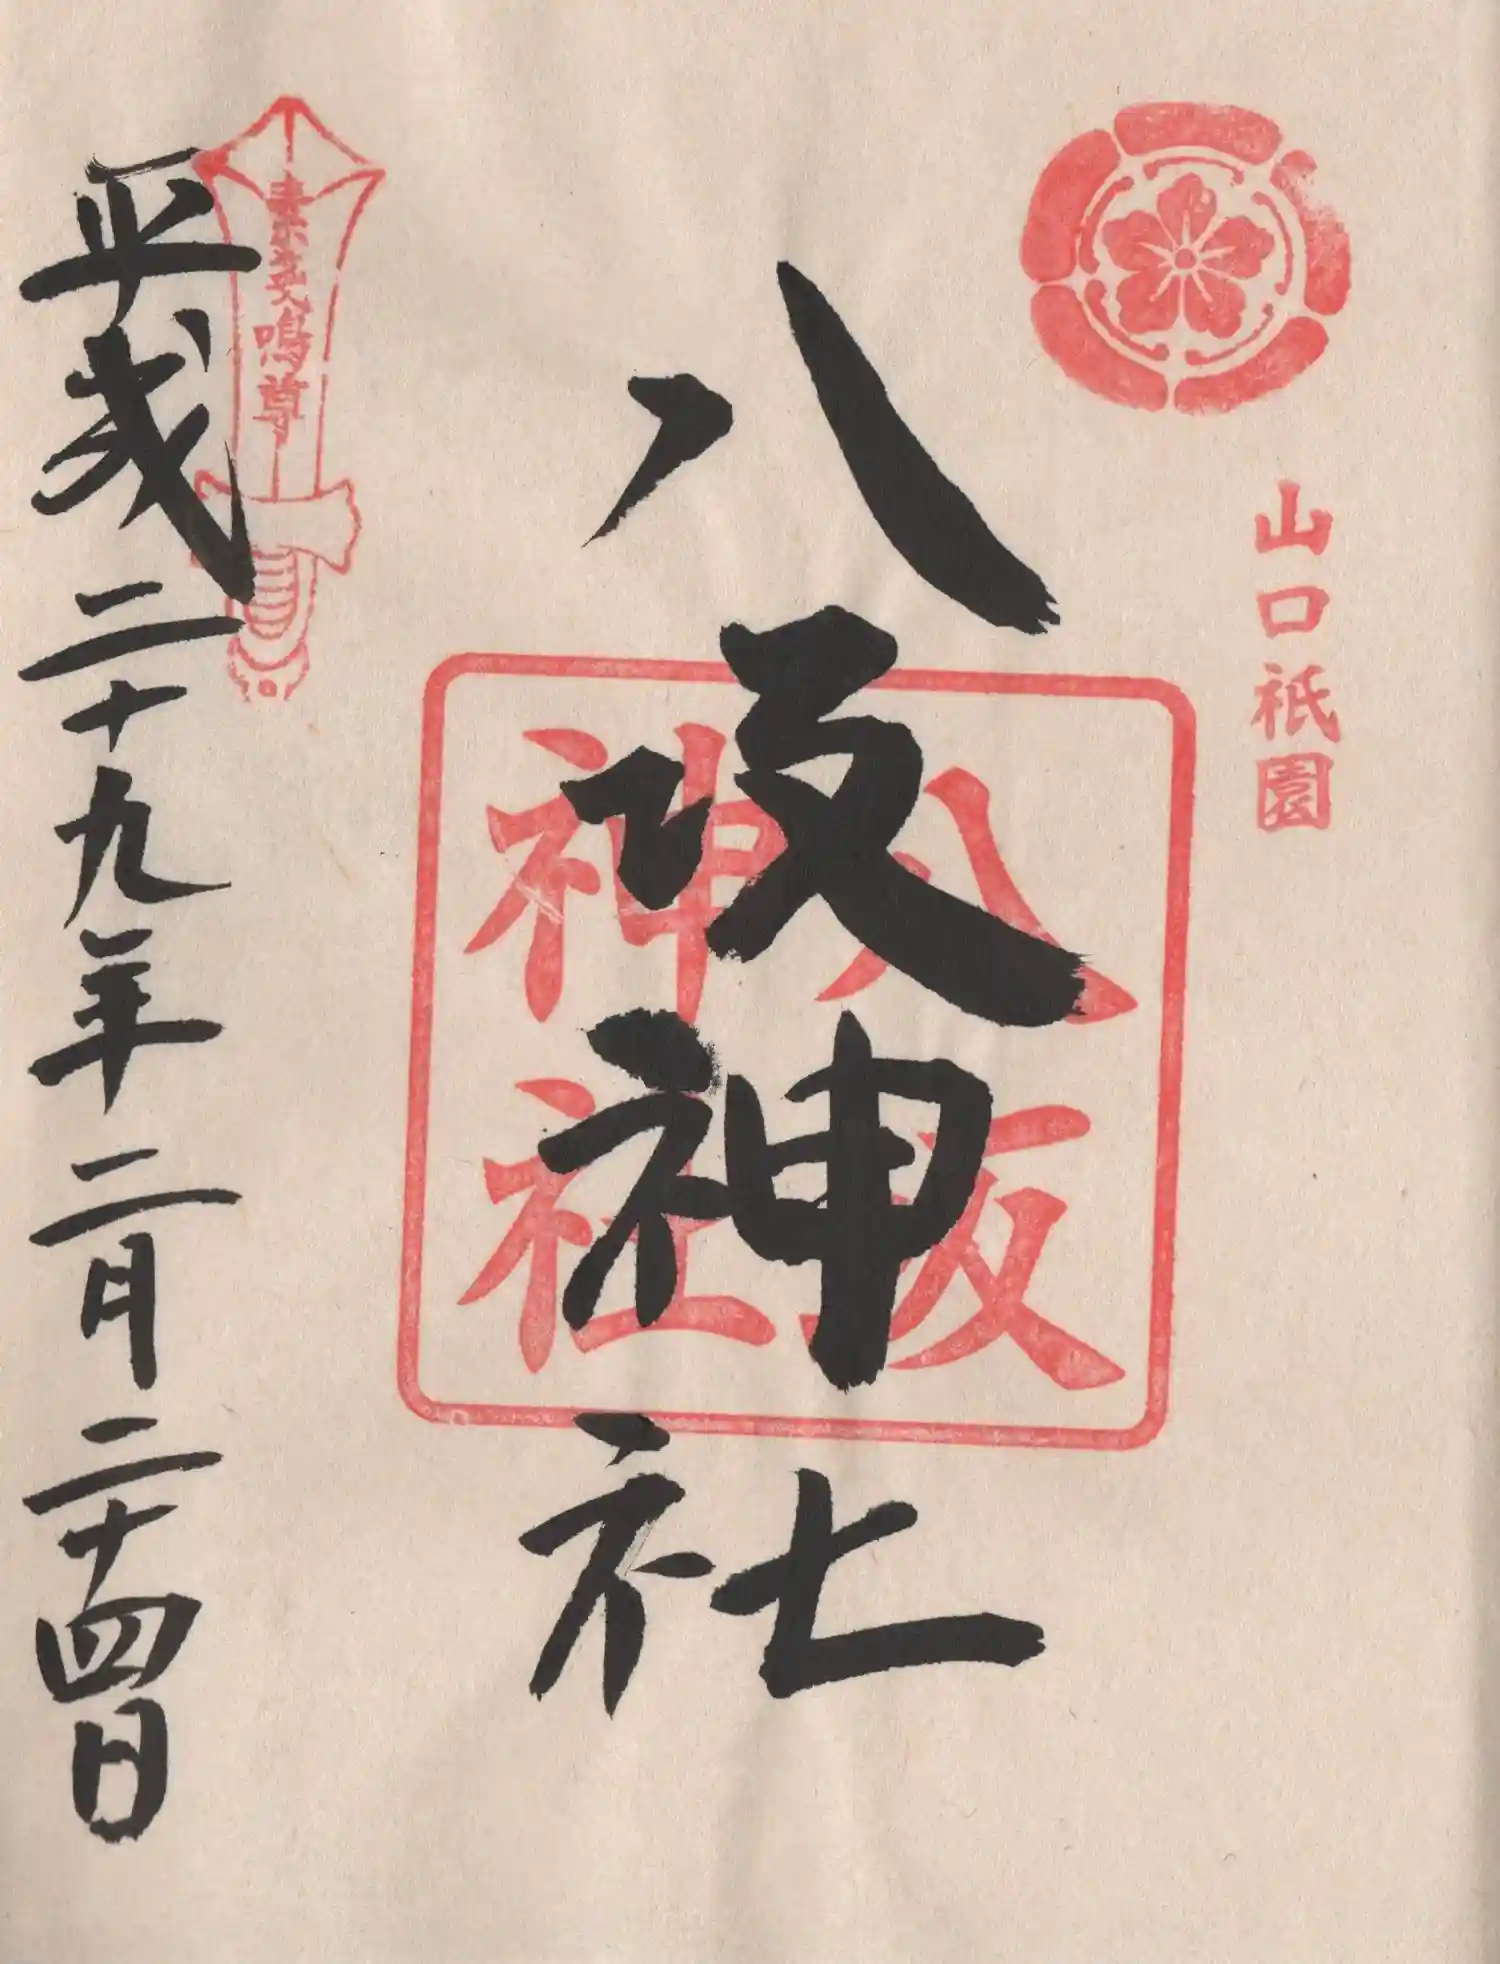 山口祇園
八坂神社
八坂
神社
素戔嗚尊
平成二十九年二月二十四日